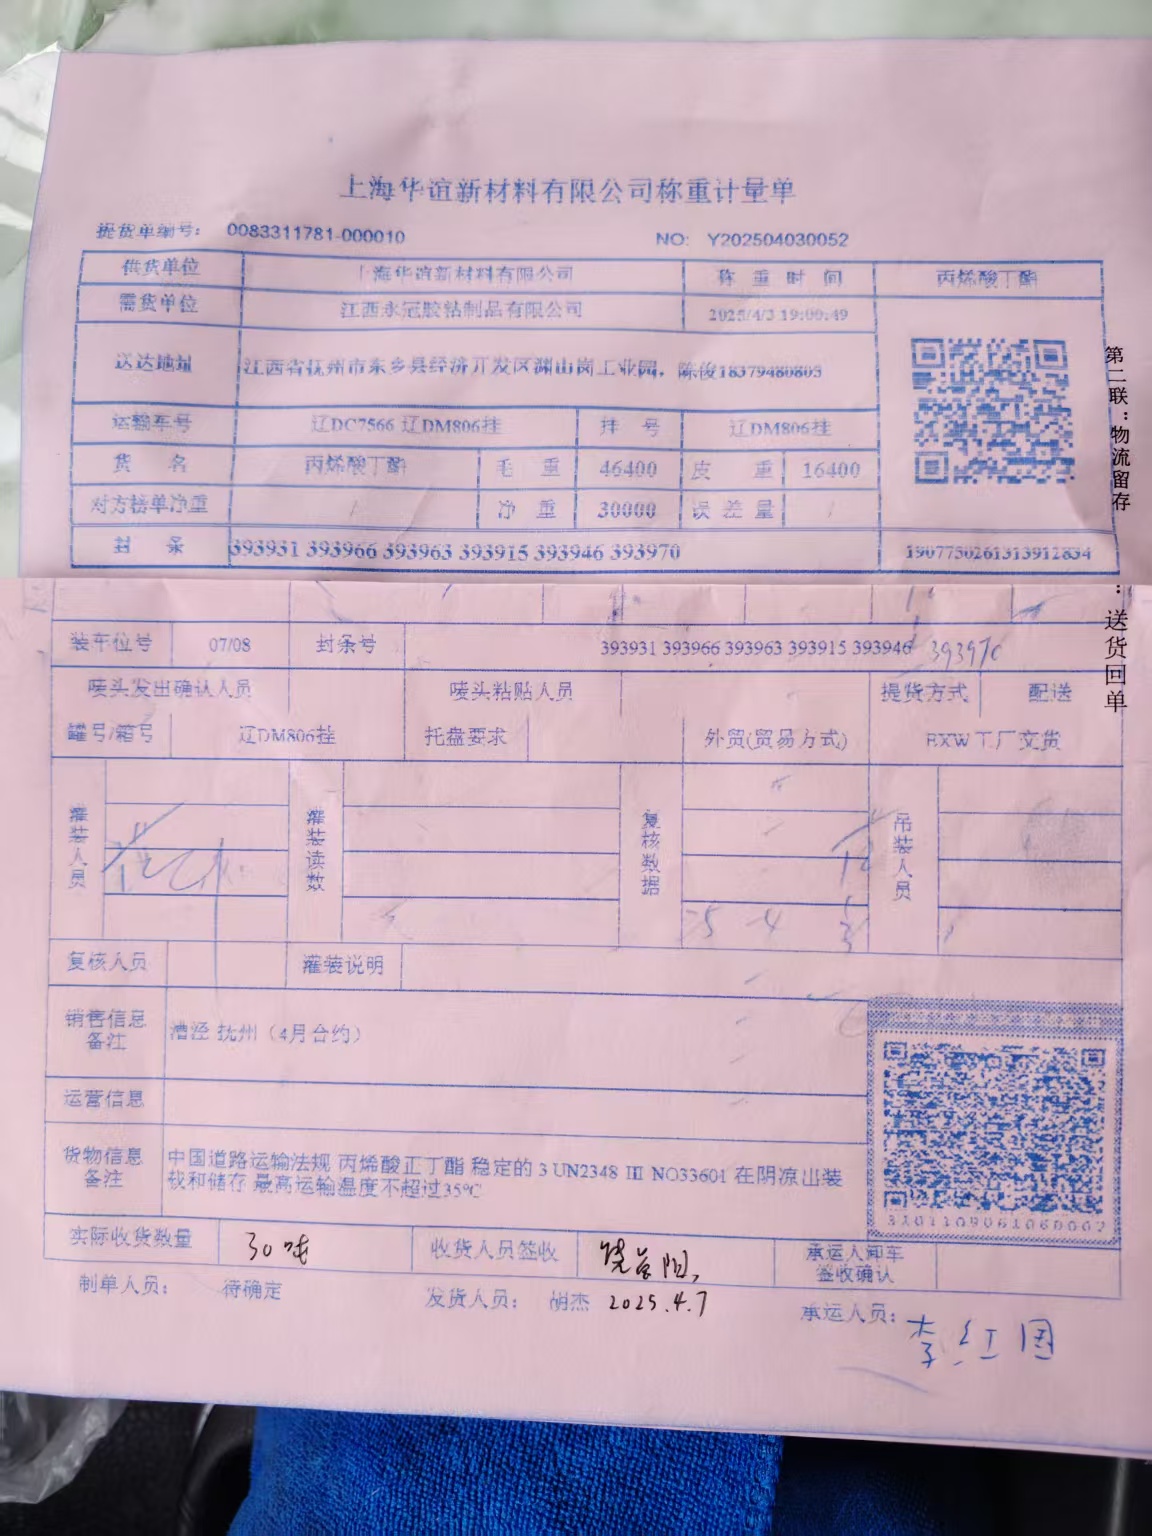 上海华谊新材料有限公司称重计量单
提货单编号: 0083311781-000010 NO: Y202504030052
供货单位 上海华谊新材料有限公司 称重时间 丙烯酸丁酯
需货单位 江西永冠胶粘制品有限公司 2025/4/3 19:00:49
送达地址 江西省抚州市东乡县经济开发区渊山岗工业园，陈俊18379480805
运输车号 辽DC7566 辽DM806挂 挂号 辽DM806挂
货名 丙烯酸丁酯 毛重 46400 皮重 16400
对方榜单净重 / 净重 30000 误差量 /
封条 393931 393966 393963 393915 393946 393970 1907750261313912834
第二联：物流留存
：送货回单
装车位号 07/08 封条号 393931 393966 393963 393915 393946 393970
唛头发出确认人员 唛头粘贴人员 提货方式 配送
罐号/箱号 辽DM806挂 托盘要求 外贸(贸易方式) EXW工厂交货
灌装人员 灌装读数 复核数据 吊装人员
25 4 3
复核人员 灌装说明
销售信息备注 漕泾 抚州（4月合约）
运营信息
货物信息备注 中国道路运输法规 丙烯酸正丁酯 稳定的 3 UN2348 III NO33601 在阴凉出装
载和储存 最高运输温度不超过35℃
3101109061060002
实际收货数量 30吨 收货人员签收 承运人卸车签收确认
制单人员: 待确定 发货人员: 胡杰 2025.4.7 承运人员: 李红国